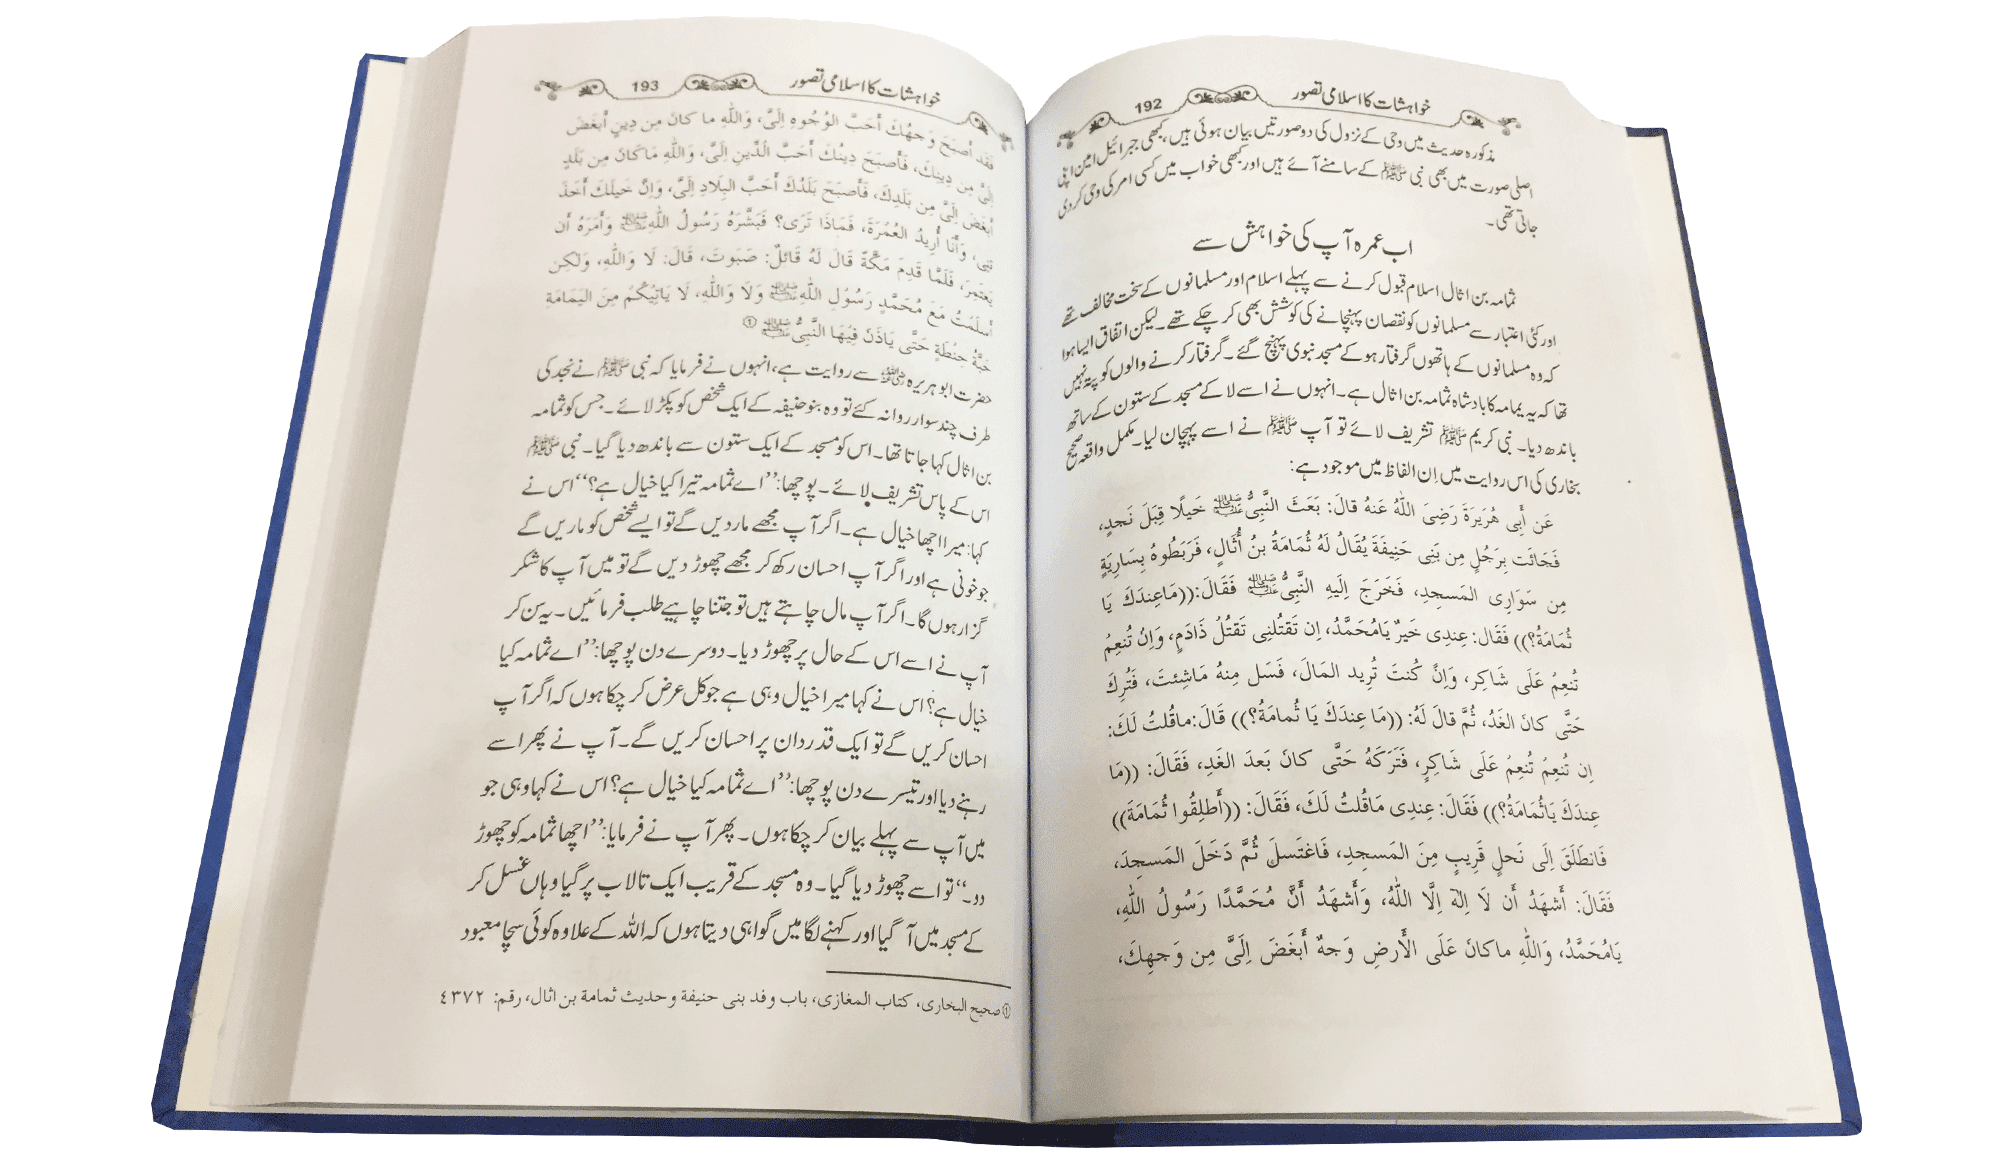 خواہشات کا اسلامی تصور 192
مذکورہ حدیث میں وحی کے نزول کی دو صورتیں بیان ہوئی ہیں، کبھی جبرائیل امین اپنی
اصلی صورت میں بھی نبی ﷺ کے سامنے آئے ہیں اور کبھی خواب میں کسی امر کی وحی کر دی
جاتی تھی۔
اب عمرہ آپ کی خواہش سے
ثمامہ بن اثال اسلام قبول کرنے سے پہلے اسلام اور مسلمانوں کے سخت مخالف تھے
اور کئی اعتبار سے مسلمانوں کو نقصان پہنچانے کی کوشش بھی کر چکے تھے۔ لیکن اتفاق ایسا ہوا
کہ وہ مسلمانوں کے ہاتھوں گرفتار ہو کے مسجد نبوی پہنچ گئے۔ گرفتار کرنے والوں کو پتہ نہیں
تھا کہ یہ یمامہ کا بادشاہ ثمامہ بن اثال ہے۔ انہوں نے اسے لا کے مسجد کے ستون کے ساتھ
باندھ دیا۔ نبی کریم ﷺ تشریف لائے تو آپ ﷺ نے اسے پہچان لیا۔ مکمل واقعہ صحیح
بخاری کی اس روایت میں اِن الفاظ میں موجود ہے:
عَن أَبِى هُرَيرَةَ رَضِىَ اللّٰهُ عَنهُ قالَ: بَعَثَ النَّبِىُّ ﷺ خَيلًا قِبَلَ نَجدٍ،
فَجَائَت بِرَجُلٍ مِن بَنِى حَنِيفَةَ يُقَالُ لَهُ ثُمَامَةُ بنُ أُثَالٍ، فَرَبَطُوهُ بِسَارِيَةٍ
مِن سَوَارِى المَسجِدِ، فَخَرَجَ اِلَيهِ النَّبِىُّ ﷺ فَقَالَ: ((مَاعِندَكَ يَا
ثُمَامَةُ؟)) فَقَالَ: عِندِى خَيرٌ يَامُحَمَّدُ، اِن تَقتُلنِى تَقتُلُ ذَادَمٍ، وَاِنْ تُنعِمُ
تُنعِمُ عَلَى شَاكِر، وَاِنْ كُنتَ تُرِيد المَالَ، فَسَل مِنهُ مَاشِئتَ، فَتُرِكَ
حَتَّى كانَ الغَدُ، ثُمَّ قالَ لَهُ: ((مَا عِندَكَ يَا ثُمامَةُ؟)) قَالَ: ماقُلتُ لَكَ:
اِن تُنعِمُ تُنعِمُ عَلَى شَاكِرٍ، فَتَرَكَهُ حَتَّى كانَ بَعدَ الغَدِ، فَقَالَ: ((مَا
عِندَكَ يَاثُمَامَةُ؟)) فَقَالَ: عِندِى مَاقُلتُ لَكَ، فَقَالَ: ((أَطلِقُوا ثُمَامَةَ))
فَانطَلَقَ اِلَى نَحلٍ قَرِيبٍ مِنَ المَسجِدِ، فَاغتَسلَ ثُمَّ دَخَلَ المَسجِدَ،
فَقَالَ: أَشهَدُ أَن لَا اِلٰهَ اِلَّا اللّٰهُ، وَأَشهَدُ أَنَّ مُحَمَّدًا رَسُولُ اللّٰهِ،
يَامُحَمَّدُ، وَاللّٰهِ ماكانَ عَلَى الأَرضِ وَجهٌ أَبغَضَ اِلَىَّ مِن وَجهِكَ،
خواہشات کا اسلامی تصور 193
فَقَد أصبَحَ وَجهُكَ أَحَبَّ الوُجُوهِ اِلَىَّ، وَاللّٰهِ ما كانَ مِن دِينٍ أَبغَضَ
اِلَىَّ مِن دِينِكَ، فَأَصبَحَ دِينُكَ أَحَبَّ الدِّينِ اِلَىَّ، وَاللّٰهِ مَاكَانَ مِن بَلَدٍ
أَبغَضَ اِلَىَّ مِن بَلَدِكَ، فَأَصبَحَ بَلَدُكَ أَحَبَّ البِلَادِ اِلَىَّ، وَاِنَّ خَيلَكَ أَخَذَ
تنِى، وَأَنَا أُرِيدُ العُمْرَةَ، فَمَاذَا تَرَى؟ فَبَشَّرَهُ رَسُولُ اللّٰهِ ﷺ وَأَمَرَهُ أَن
يَعتَمِرَ، فَلَمَّا قَدِمَ مَكَّةَ قَالَ لَهُ قَائِلٌ: صَبَوتَ، قَالَ: لَا وَاللّٰهِ، وَلَكِن
أَسلَمتُ مَعَ مُحَمَّدٍ رَسُولِ اللّٰهِ ﷺ وَلَا وَاللّٰهِ، لَا يَاتِيكُمْ مِنَ اليَمَامَةِ
حَبَّةُ حِنْطَةٍ حَتَّى يَاذَنَ فِيهَا النَّبِىُّ ﷺ ①
حضرت ابو ہریرہ ؓ سے روایت ہے، انہوں نے فرمایا کہ نبی ﷺ نے نجد کی
طرف چند سوار روانہ کئے تو وہ بنو حنیفہ کے ایک شخص کو پکڑ لائے۔ جس کو ثمامہ
بن اثال کہا جاتا تھا۔ اس کو مسجد کے ایک ستون سے باندھ دیا گیا۔ نبی ﷺ
اس کے پاس تشریف لائے۔ پوچھا: ’’اے ثمامہ تیرا کیا خیال ہے؟‘‘ اس نے
کہا: میرا اچھا خیال ہے۔ اگر آپ مجھے مار دیں گے تو ایسے شخص کو ماریں گے
جو خونی ہے اور اگر آپ احسان رکھ کر مجھے چھوڑ دیں گے تو میں آپ کا شکر
گزار ہوں گا۔ اگر آپ مال چاہتے ہیں تو جتنا چاہیے طلب فرمائیں۔ یہ سن کر
آپ نے اسے اس کے حال پر چھوڑ دیا۔ دوسرے دن پوچھا: ’’اے ثمامہ کیا
خیال ہے؟ اس نے کہا میرا خیال وہی ہے جو کل عرض کر چکا ہوں کہ اگر آپ
احسان کریں گے تو ایک قدردان پر احسان کریں گے۔ آپ نے پھر اسے
رہنے دیا اور تیسرے دن پوچھا: ’’اے ثمامہ کیا خیال ہے؟ اس نے کہا وہی جو
میں آپ سے پہلے بیان کر چکا ہوں۔ پھر آپ نے فرمایا: ’’اچھا ثمامہ کو چھوڑ
دو۔‘‘ تو اسے چھوڑ دیا گیا۔ وہ مسجد کے قریب ایک تالاب پر گیا وہاں غسل کر
کے مسجد میں آ گیا اور کہنے لگا میں گواہی دیتا ہوں کہ اللہ کے علاوہ کوئی سچا معبود
① صحيح البخارى، كتاب المغازى، باب وفد بنى حنيفة وحديث ثمامة بن اثال، رقم: ٤٣٧٢